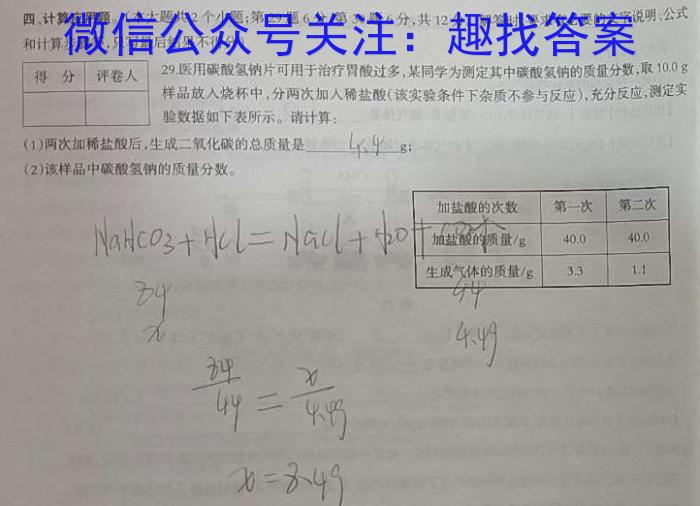 四、计算应用题。(本大题共2个小题;第29题6分,第30题6分,共12分。
必要的文字说明、公式
微信公众号关注：趣找答案
和计算
得 分 评卷人
29.医用碳酸氢钠片可用于治疗胃酸过多,某同学为测定其中碳酸氢钠的质量分数,取10.0 g
样品放入烧杯中,分两次加入稀盐酸(该实验条件下杂质不参与反应),充分反应,测定实
验数据如下表所示。请计算:
(1)两次加稀盐酸后,生成二氧化碳的总质量是 4.4 g;
(2)该样品中碳酸氢钠的质量分数。
加盐酸的次数 第一次 第二次
加盐酸的质量/g 40.0 40.0
生成气体的质量/g 3.3 1.1
NaHCO3+HCl=NaCl+H2O+CO2↑
84 44
x 4.4g
84/44=x/4.4g
x=8.4g